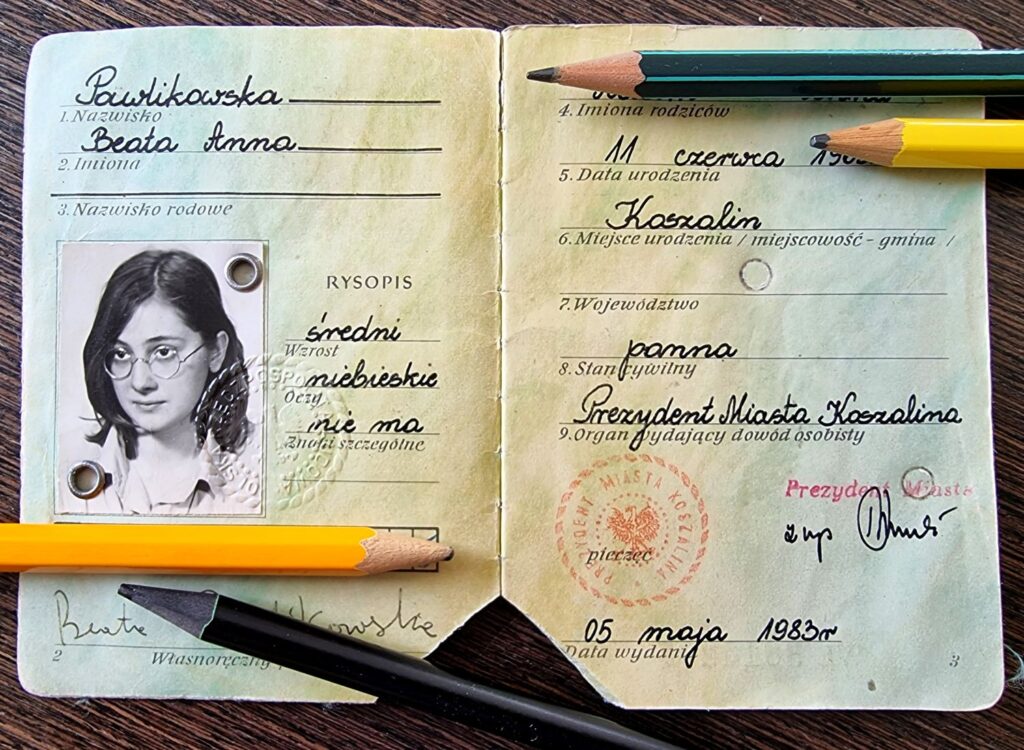 Pawlikowska
1. Nazwisko
Beata Anna
2. Imiona
3. Nazwisko rodowe
RYSOPIS
średni
Wzrost
niebieskie
Oczy
nie ma
Znaki szczególne
Beata
2 Własnoręczny
4. Imiona rodziców
11 czerwca
5. Data urodzenia
Koszalin
6. Miejsce urodzenia / miejscowość - gmina /
7. Województwo
panna
8. Stan cywilny
Prezydent Miasta Koszalina
9. Organ wydający dowód osobisty
Prezydent Miasta
zup
PREZYDENT MIASTA KOSZALINA
pieczęć
05 maja 1983r
Data wydania
3